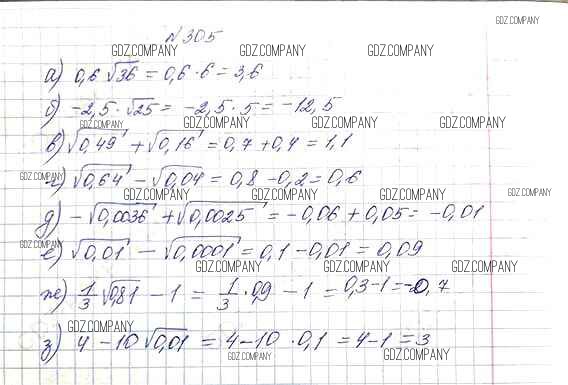 GDZ.COMPANY
№ 305
GDZ.COMPANY GDZ.COMPANY GDZ.COMPANY
а) 0,6 √36 = 0,6 · 6 = 3,6
б) -2,5 · √25 = -2,5 · 5 = -12,5
GDZ.COMPANY GDZ.COMPANY GDZ.COMPANY GDZ.COMPANY
в) √0,49 + √0,16 = 0,7 + 0,4 = 1,1
г) √0,64 - √0,04 = 0,8 - 0,2 = 0,6
GDZ.COMPANY GDZ.COMPANY GDZ.COMPANY GDZ.COMPANY GDZ.COMPANY
д) -√0,0036 + √0,0025 = -0,06 + 0,05 = -0,01
е) √0,01 - √0,0001 = 0,1 - 0,01 = 0,09
GDZ.COMPANY GDZ.COMPANY GDZ.COMPANY GDZ.COMPANY
ж) 1/3 √0,81 - 1 = 1/3 · 0,9 - 1 = 0,3 - 1 = -0,7
GDZ.COMPANY
з) 4 - 10 √0,01 = 4 - 10 · 0,1 = 4 - 1 = 3
GDZ.COMPANY GDZ.COMPANY